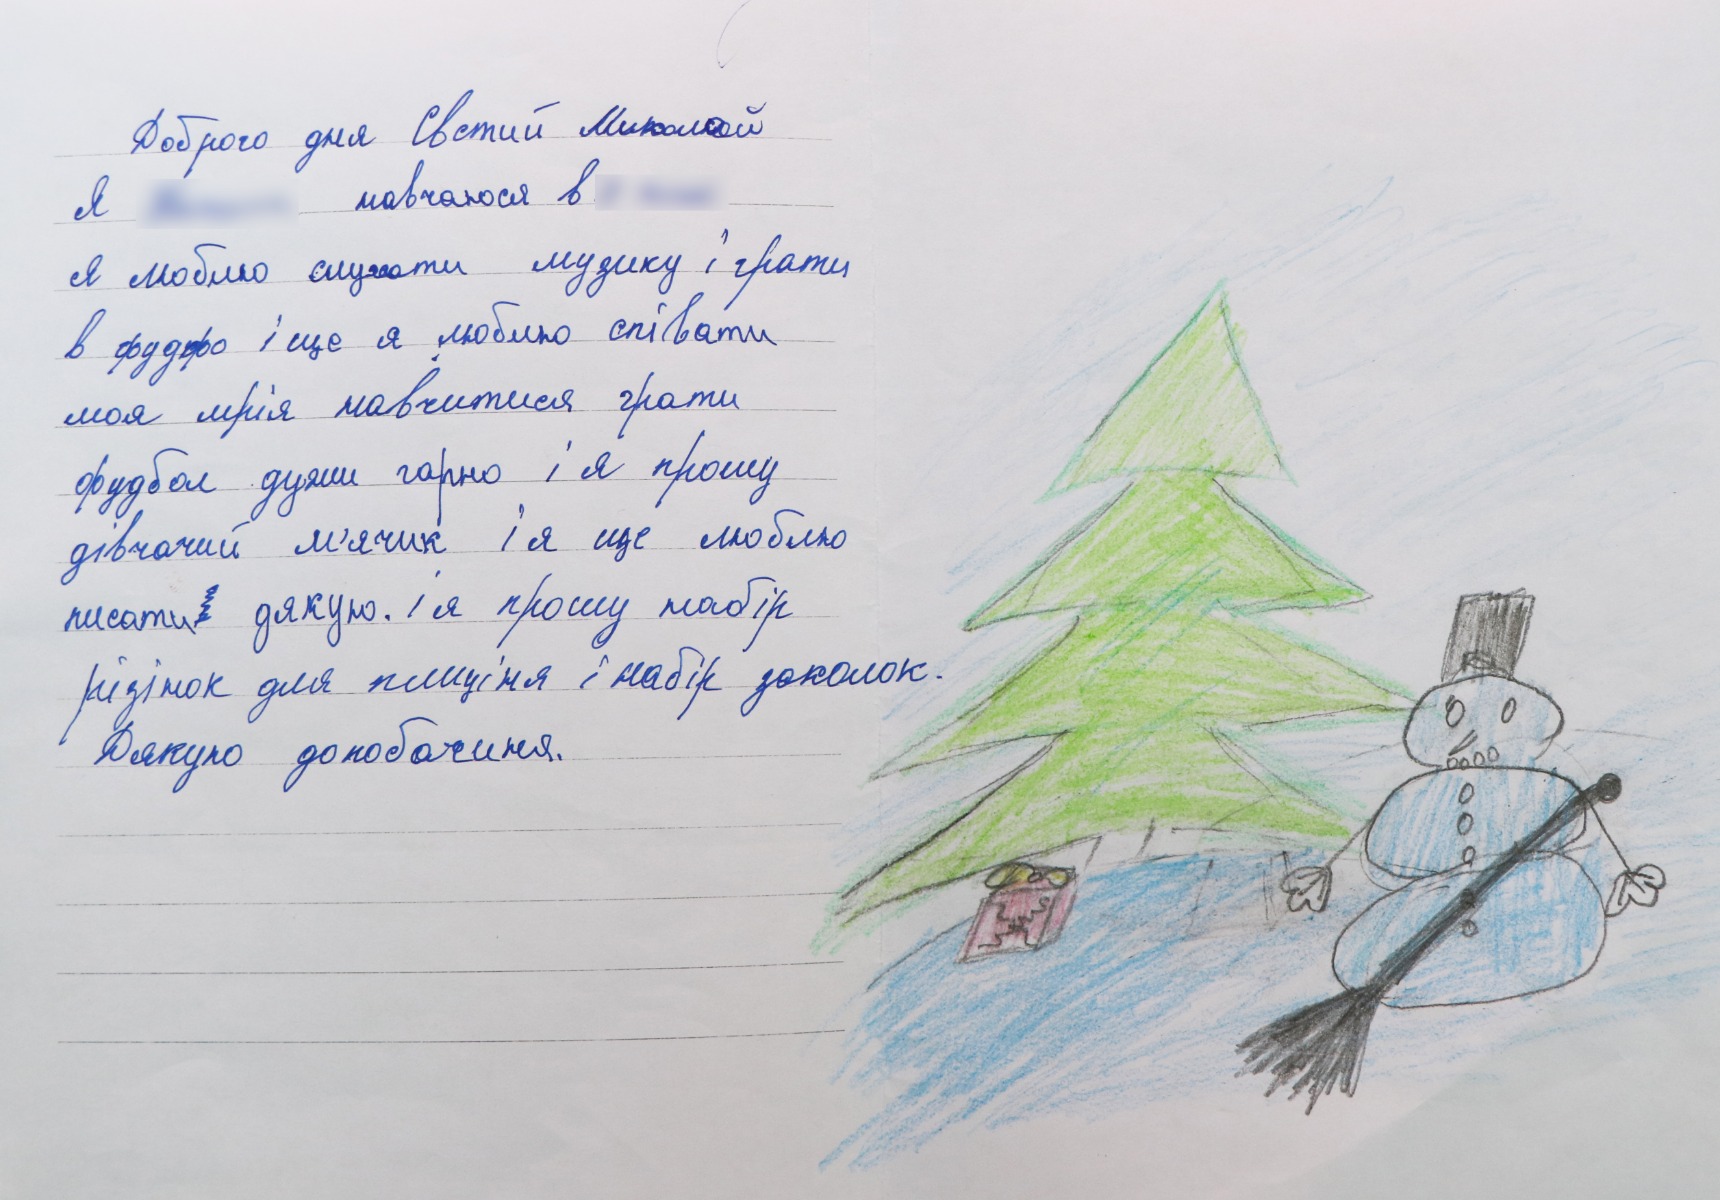 Доброго дня Свєтий Миколай
Я навчаюся в
я люблю слухати музику і грати
в фудфо і ще я люблю співати
моя мрія навчитися грати
фудбол дужи гарно і я прошу
дівчачий м'ячик і я ще люблю
писати дякую. і я прошу набір
різінок для плиціня і набір заколок.
Дякую допобачиння.